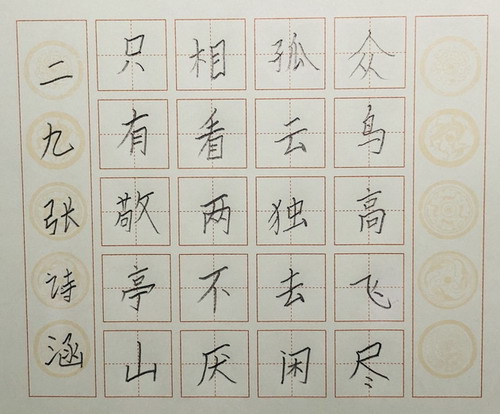 众鸟高飞尽
孤云独去闲
相看两不厌
只有敬亭山
二九张诗涵